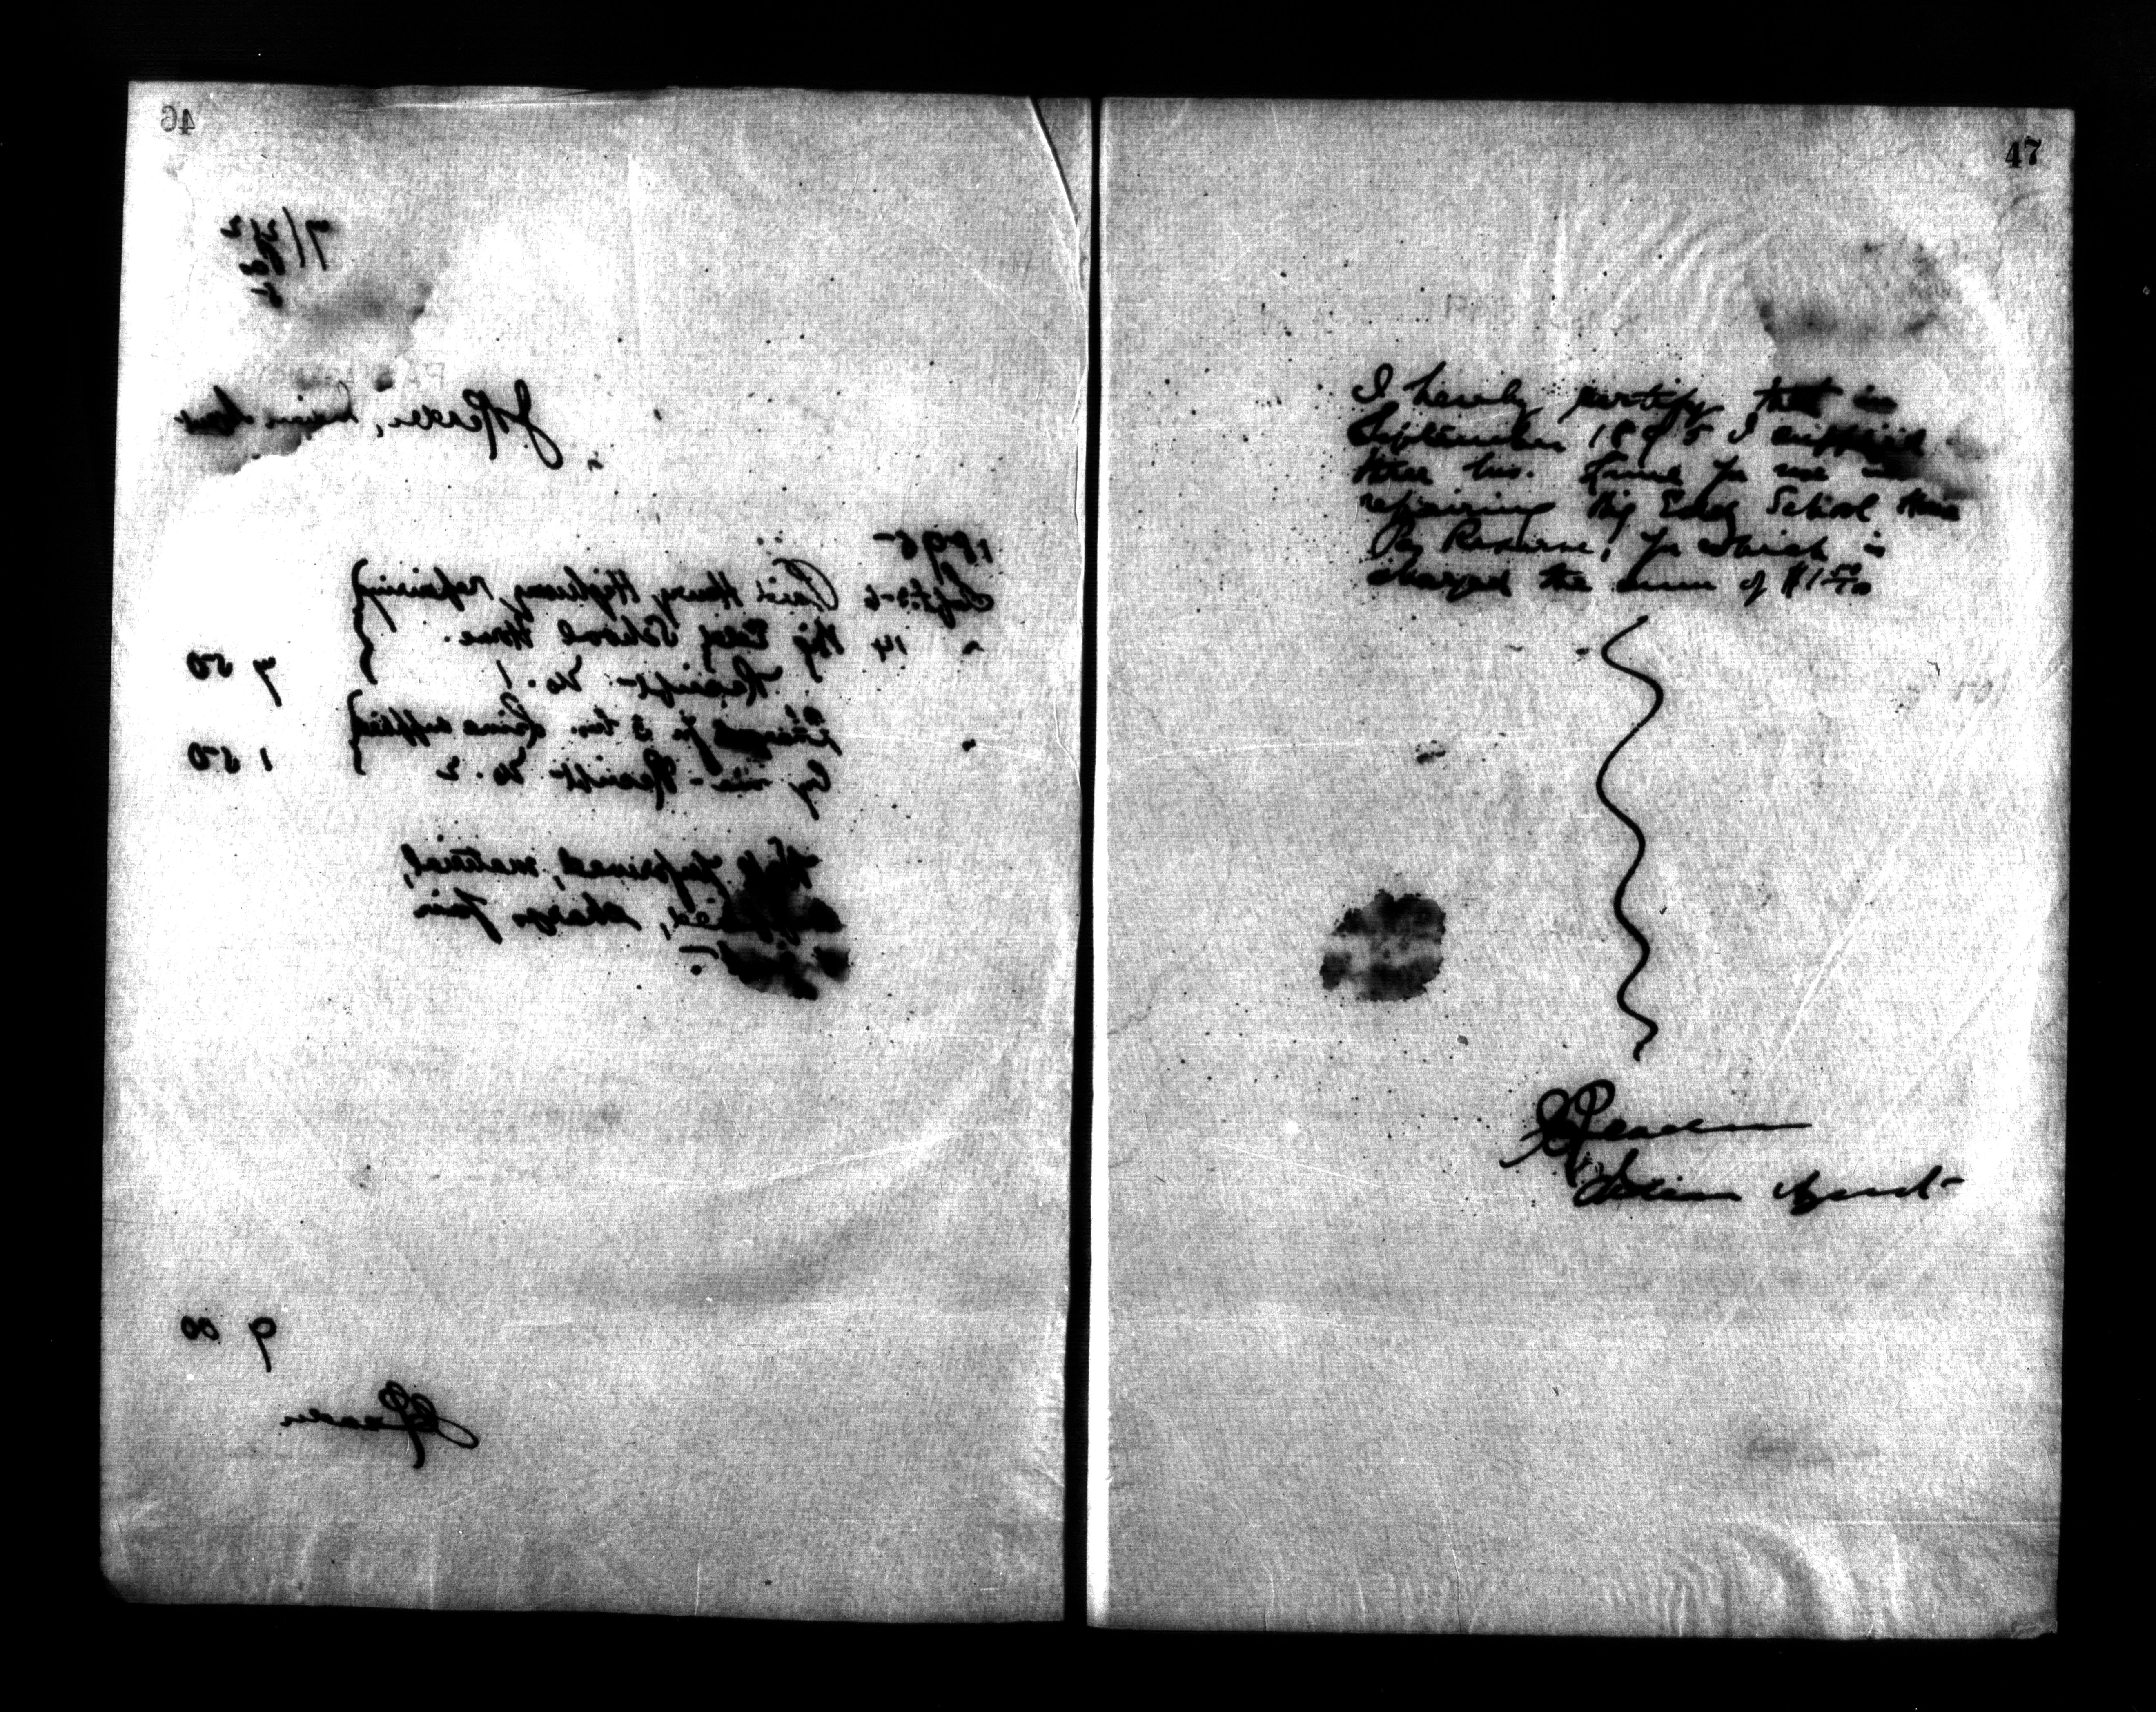 46
7/
J. Reader, Indian Agent
1895
Sept. 5-6 Paid Henry Highway repairing
" 14 Big Eddy School House.
Receipt No. 1
7 50
" Charged for 3 bus. Lime supplied
by me - Receipt No. 2
1 50
Work performed, material
supplied, charge fair
9 00
J Reader
47
I hereby certify that in
September 1895 I supplied
three bus. Lime for use in
repairing Big Eddy School House
Pas Reserve, for which is
charged the sum of $1 50/100
J Reader
Indian Agent